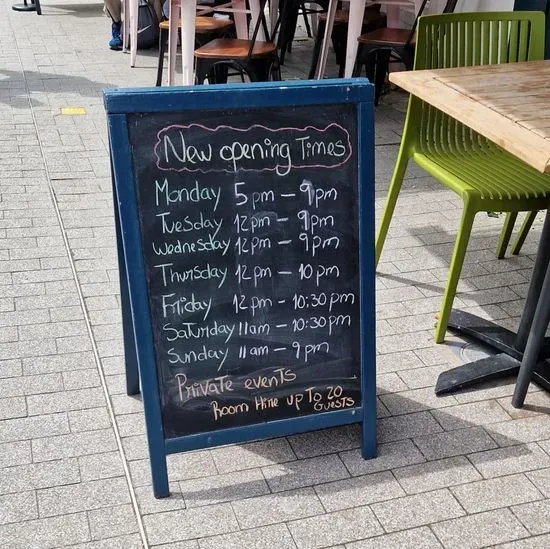 New opening Times
Monday 5pm – 9pm
Tuesday 12pm – 9pm
Wednesday 12pm – 9pm
Thursday 12pm – 10pm
Friday 12pm – 10:30pm
Saturday 11am – 10:30pm
Sunday 11am – 9pm
Private events
Room Hire up To 20
Guests